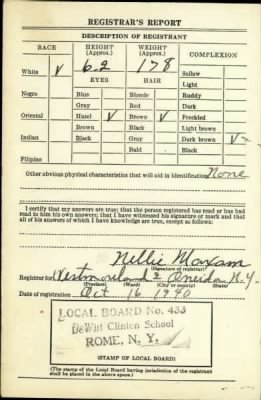 REGISTRAR'S REPORT
DESCRIPTION OF REGISTRANT
RACE HEIGHT (Approx.) WEIGHT (Approx.) COMPLEXION
White ✓ 6-2 178 Sallow
Light
EYES HAIR
Negro Blue Blonde Ruddy
Gray Red Dark
Oriental Hazel ✓ Brown ✓ Freckled
Brown Black Light brown
Indian Black Gray Dark brown ✓
Bald Black
Filipino
Other obvious physical characteristics that will aid in identification None
I certify that my answers are true; that the person registered has read or has had
read to him his own answers; that I have witnessed his signature or mark and that
all of his answers of which I have knowledge are true, except as follows:
Nellie Maxam
(Signature of registrar)
Registrar for Westmoreland 2 Oneida N.Y.
(Precinct) (Ward) (City or county) (State)
Date of registration Oct 16 1940
LOCAL BOARD No. 433
DeWitt Clinton School
ROME, N. Y.
(STAMP OF LOCAL BOARD)
(The stamp of the Local Board having jurisdiction of the registrant
shall be placed in the above space.)